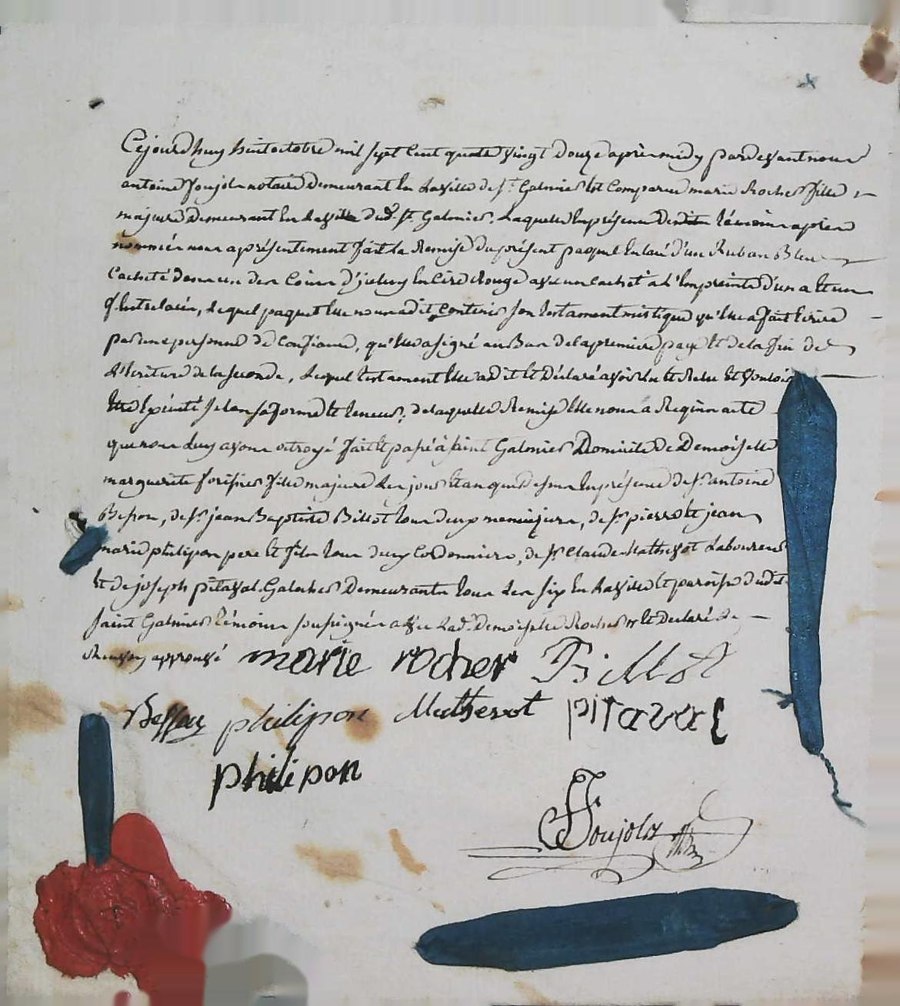 Cejourdhuy huit octobre mil sept cent quatre vingt douze après midy pardevant nous
antoine Soujol notaire demeurant en la ville de st. Galmier est comparu marie Rocher fille
majeure demeurant en la ville dud. st. Galmier, Laquelle en présence des témoins après
nommés nous a présentement fait la Remise du présent paquet enlacé d'un Ruban Bleu
Cacheté dans un des Coins d'iceluy en Cire Rouge avec un cachet a l'empreinte d'un a et un
entrelacés, Lequel paquet elle nous a dit contenir son testament mistique qu'elle a fait écrire
par une personne de confiance, qu'elle a signé au Bas de la première page et de la fin de
L'écriture de la seconde, Lequel testament elle a dit et déclaré avoir lu et Relu et vouloir
être Exécuté selon sa forme et teneur, de laquelle Remise elle nous a Requis acte
que nous luy avons octroyé fait et passé à saint Galmier Domicile de Demoiselle
marguerite fille majeure Les jour et an que dessus en présence de sr. antoine
Besson, de sr. jean Baptiste Billot tous deux de sr. pierre et jean
marie philipon pere et fils tous deux Cordonniers, de sr. Claude Matherot Laboureur
et de joseph pitaval Galocher Demeurants tous Les six en La ville et paroisse dudit
saint Galmier témoins soussignés avec Lad. Demoiselle Rocher et déclaré de
approuvé marie rocher Billot
Besson philipon Matherot pitaval
philipon
Soujol